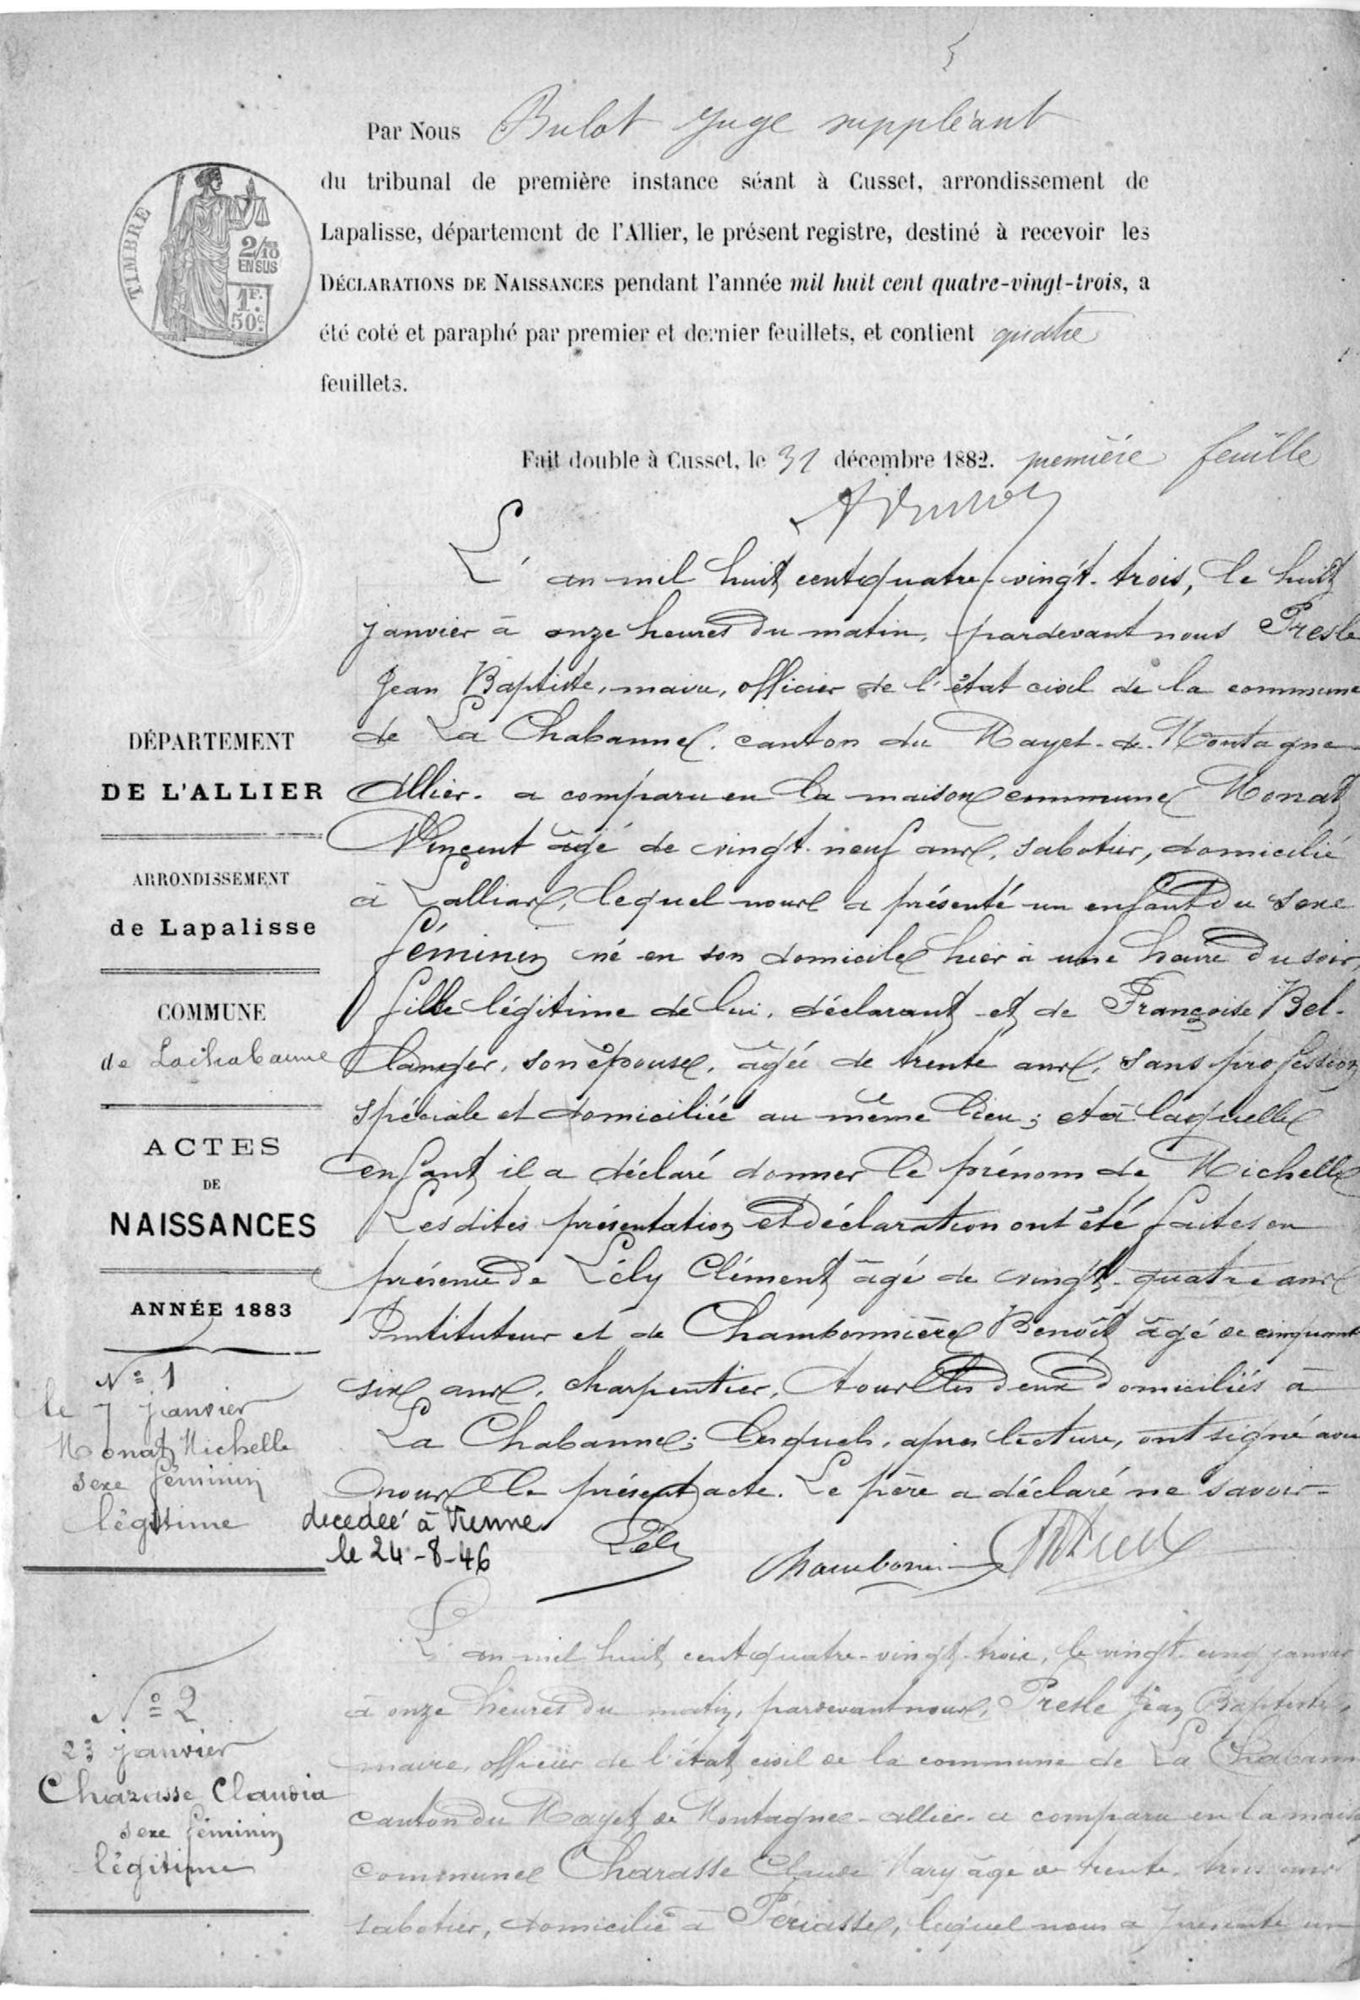 Par Nous Bulot juge suppléant
du tribunal de première instance séant à Cusset, arrondissement de
Lapalisse, département de l'Allier, le présent registre, destiné à recevoir les
DÉCLARATIONS DE NAISSANCES pendant l'année mil huit cent quatre-vingt-trois, a
été coté et paraphé par premier et dernier feuillets, et contient quatre
feuillets.
TIMBRE
2/10
EN SUS
1F.
50c.
Fait double à Cusset, le 31 décembre 1882. première feuille
L'an mil huit cent quatre-vingt-trois, le huit
janvier à onze heures du matin, pardevant nous Presle
Jean Baptiste, maire, officier de l'état civil de la commune
de La Chabanne, canton du Mayet-de-Montagne
Allier- a comparu en la maison commune Monat
Vincent âgé de vingt-neuf ans, sabotier, domicilié
à Lallias, lequel nous a présenté un enfant du sexe
féminin né en son domicile hier à une heure du soir,
fille légitime de lui, déclarant et de Françoise Bel-
langer, son épouse, âgée de trente ans, sans profession
spéciale et domiciliée au même lieu; et à laquelle
enfant il a déclaré donner le prénom de Michelle
Lesdites présentation et déclaration ont été faites en
présence de Lély Clément âgé de vingt-quatre ans
Instituteur et de Chambonnière Benoît âgé de cinquante
six ans, charpentier, tous les deux domiciliés à
La Chabanne; lesquels, après lecture, ont signé avec
nous le présent acte. Le père a déclaré ne savoir-
Lély
DÉPARTEMENT
DE L'ALLIER
ARRONDISSEMENT
de Lapalisse
COMMUNE
de Lachabanne
ACTES
DE
NAISSANCES
ANNÉE 1883
No 1
le 7 janvier
Monat Michelle
sexe féminin
légitime
decedeé à Vienne
le 24-8-46
L'an mil huit cent quatre-vingt-trois, le vingt-cinq janvier
à onze heures du matin, pardevant nous, Presle Jean Baptiste,
maire, officier de l'état civil de la commune de La Chabanne
canton du Mayet de Montagne-Allier- a comparu en la maison
commune Charasse Claude Mary âgé de trente-trois ans
sabotier, domicilié à Périasse, lequel nous a présenté un
No 2
23 janvier
Charasse Claudia
sexe féminin
légitime